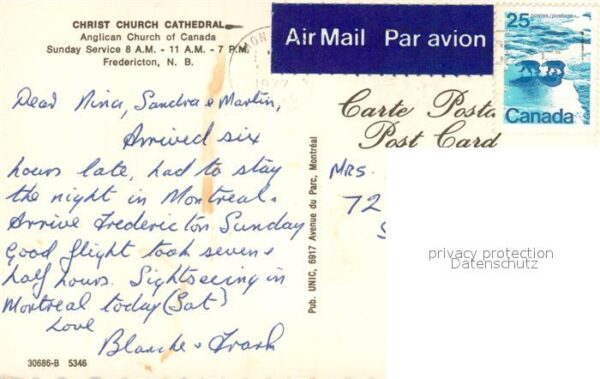 CHRIST CHURCH CATHEDRAL
Anglican Church of Canada
Sunday Service 8 A.M. - 11 A.M. - 7 P.M.
Fredericton, N. B.
Air Mail Par avion
25 postes/postage
Canada
Carte Posta
Post Card
Dear Nina, Sandra & Martin,
Arrived six
hours late, had to stay
the night in Montreal.
Arrive Fredericton Sunday
Good flight took seven &
half hours. Sightseeing in
Montreal today (Sat)
Love
Blanche & Frank
MRS.
72
S
Pub. UNIC, 6917 Avenue du Parc, Montréal
privacy protection
Datenschutz
30686-B 5346